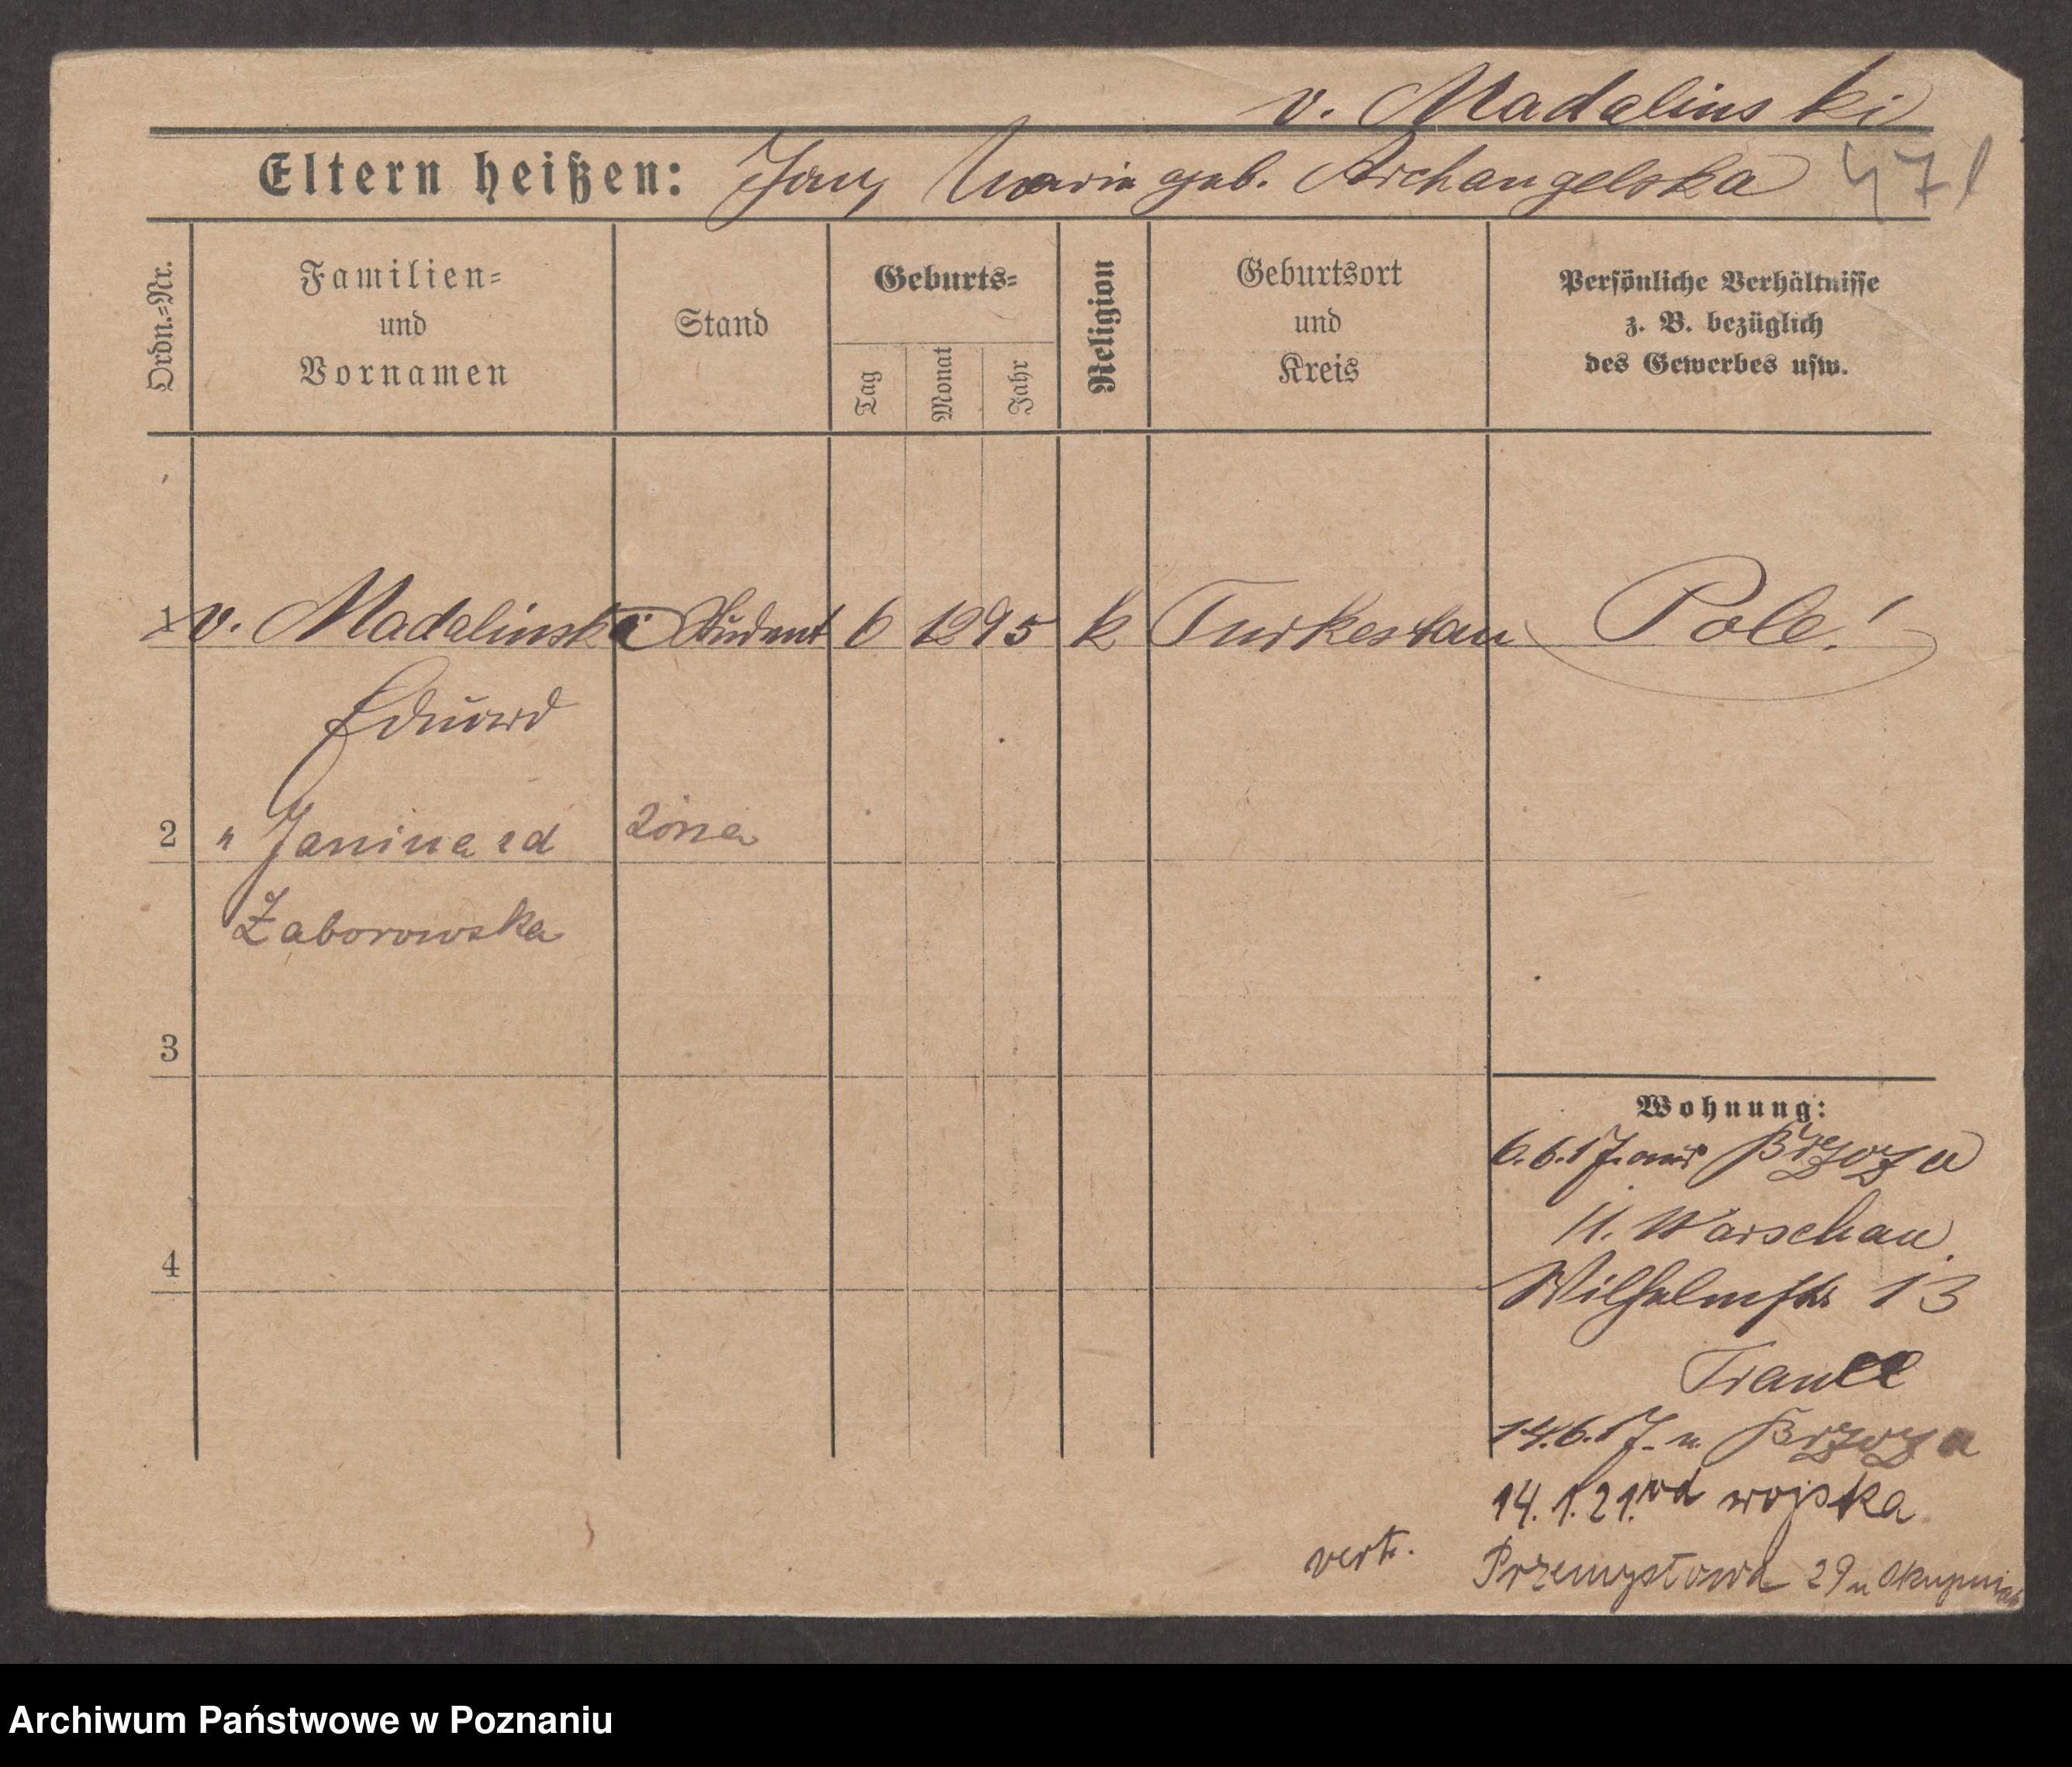 v. Madalinski
Eltern heißen: Jan, Maria geb. Archangelska 471
Ordn.=Nr.
Familien=
und
Vornamen
Stand
Geburts=
Tag
Monat
Jahr
Religion
Geburtsort
und
Kreis
Persönliche Verhältnisse
z. B. bezüglich
des Gewerbes usw.
1 v. Madalinski Student 6 12 95 k Turkestan Pole!
Eduard
2 " Janina zd żona
Zaborowska
3
4
Wohnung:
6.6.17. aus Brzoza
Warschau.
Wilhelmstr 13
14.6.17. n. Brzoza
14.1.21. od wojska
vert. Przemysłowa 29 u
Archiwum Państwowe w Poznaniu